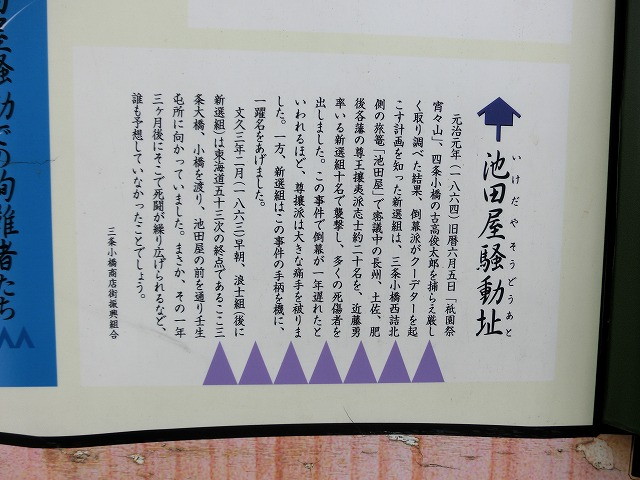 池田屋騒動址
いけだやそうどうあと
元治元年(一八六四)旧暦六月五日「祇園祭
宵々山」、四条小橋の古高俊太郎を捕らえ厳し
く取り調べた結果、倒幕派がクーデターを起
こす計画を知った新選組は、三条小橋西詰北
側の旅篭「池田屋」で審議中の長州、土佐、肥
後各藩の尊王攘夷派志士約二十名を、近藤勇
率いる新選組十名で襲撃し、多くの死傷者を
出しました。この事件で倒幕が一年遅れたと
いわれるほど、尊攘派は大きな痛手を被りま
した。一方、新選組はこの事件の手柄を機に、
一躍名をあげました。
文久三年二月(一八六三)早朝、浪士組(後に
新選組)は東海道五十三次の終点であるここ三
条大橋、小橋を渡り、池田屋の前を通り壬生
屯所に向かっていました。まさか、その一年
三ヶ月後にそこで死闘が繰り広げられるなど、
誰も予想していなかったことでしょう。
三条小橋商店街振興組合
屋騒動での殉難者たち